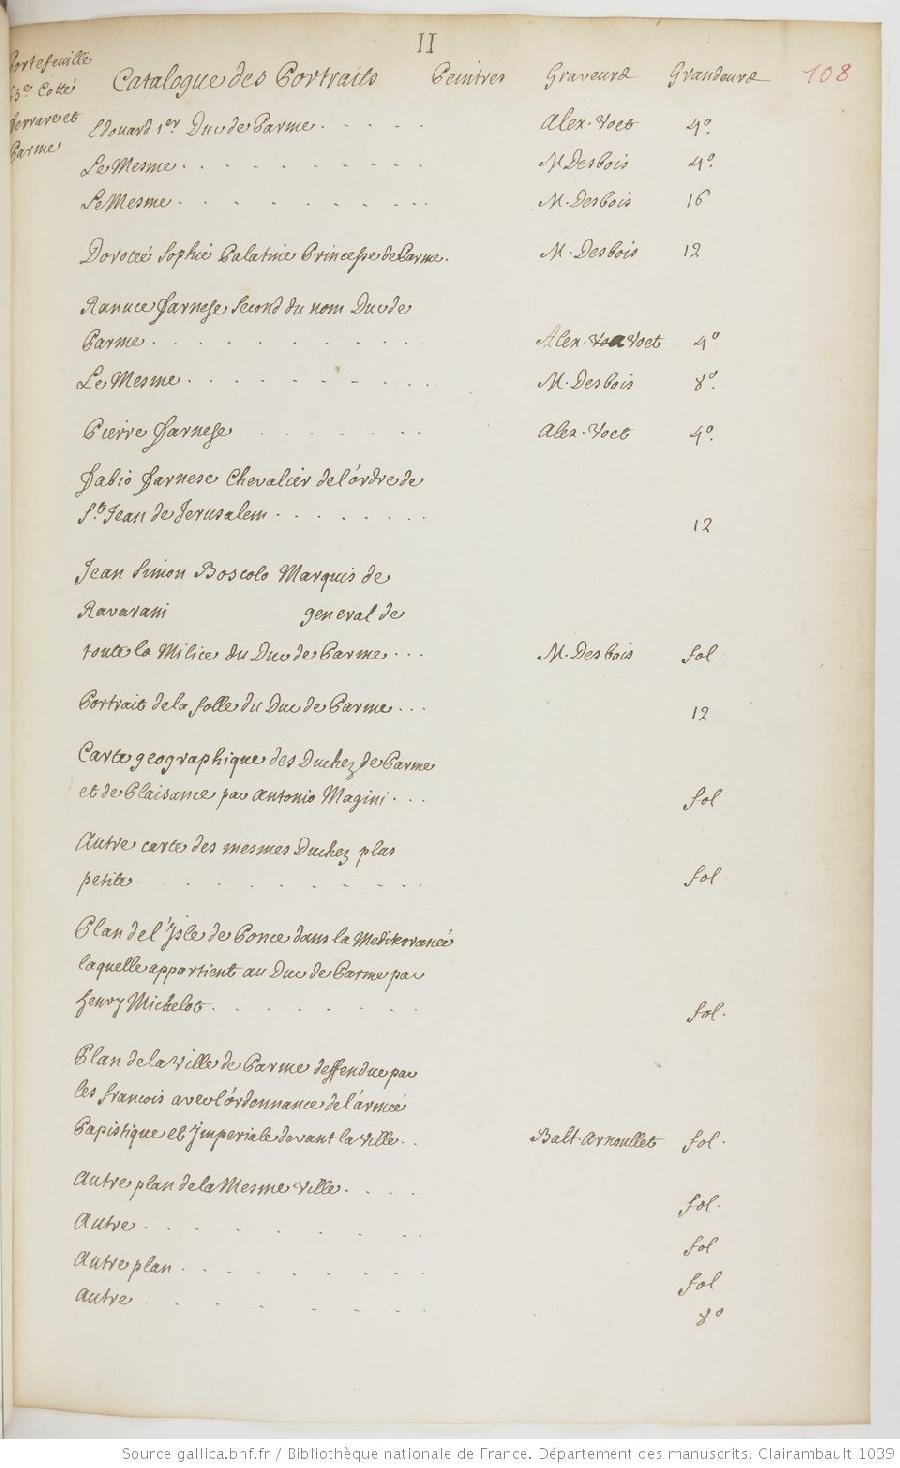 II
Portefeuille
Cotté
ferrare et
Parme
Catalogue des Portraits Peintres Graveurs Grandeurs 108
Edouard 1er Duc de Parme . . . . . Alex. Voet 4º.
Le Mesme . . . . . . . . . M Desbois 4º.
Le Mesme . . . . . . . . . M. Desbois 16
Dorocée Sophie Palatine Princesse de Parme. M. Desbois 12
Ranuce farnese Second du nom Duc de
Parme . . . . . . . . . . Alex. Voet 4º
Le Mesme . . . . . . . . . M. Desbois 8º.
Pierre farnese . . . . . . Alex. Voet 4º.
fabio farnese Chevalier de l'ordre de
St. Jean de Jerusalem . . . . . . . 12
Jean Simon Boscolo Marquis de
Ravarani general de
toute la Milice du Duc de Parme . . . M. Desbois fol
Portrait de la folle du Duc de Parme . . . 12
Carte geographique des Duchez de Parme
et de Plaisance par Antonio Magini . . . fol
Autre carte des mesmes Duchez plus
petite . . . . . . . . . fol
Plan de l'Isle de Ponce dans la Mediterranée
laquelle appartient au Duc de Parme par
henry Michelot . . . . . . . fol.
Plan de la Ville de Parme deffendue par
les francois avec l'ordonnance de l'armée
Papistique et Imperiale devant la ville . . Balt. Arnoullet fol.
Autre plan de la Mesme Ville . . . . fol.
Autre . . . . . . . . fol
Autre plan . . . . . . . fol
Autre . . . . . . . . 8º
Source gallica.bnf.fr / Bibliothèque nationale de France. Département des manuscrits. Clairambault 1039